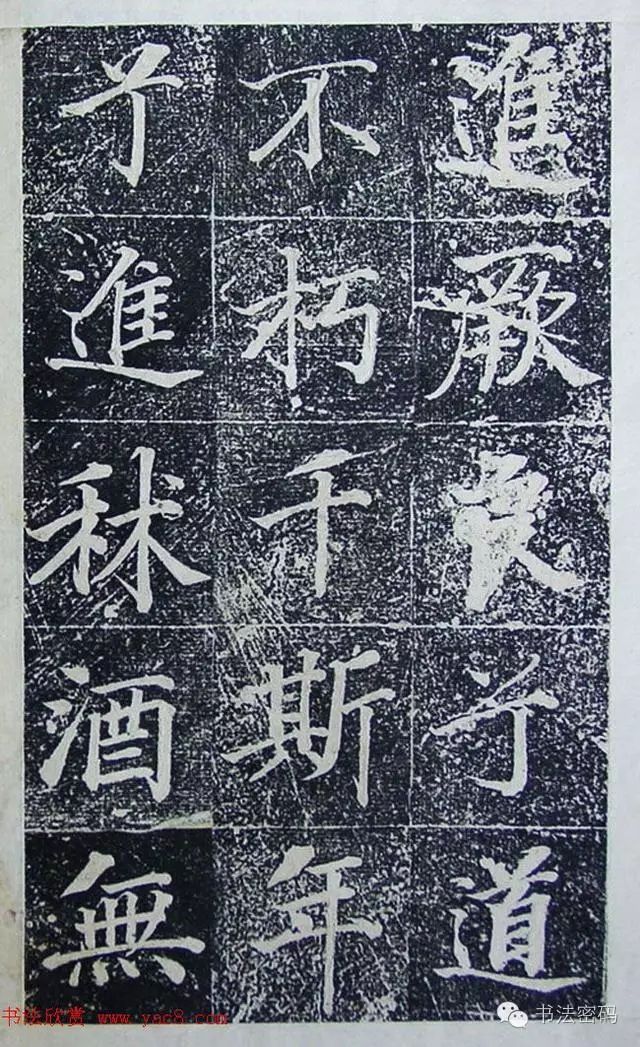 進厥良兮道
不朽千斯年
兮進秫酒無
书法欣赏 www.yac8.com
书法密码